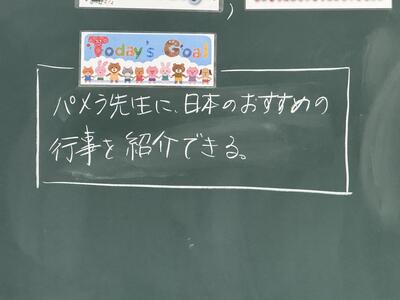 Today's Goal
パメラ先生に、日本のおすすめの
行事を紹介できる。